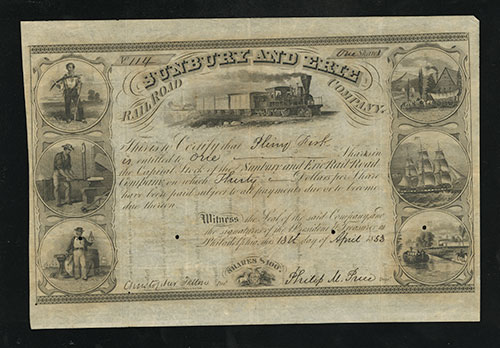 No. 114 One Share
SUNBURY AND ERIE
RAILROAD COMPANY.
This is to Certify that Pliny Fisk
is entitled to One Share in
the Capital Stock of the Sunbury and Erie Rail Road
Company on which Thirty Dollars per Share
have been paid subject to all payments due or to become
due thereon.
Witness the Seal of the said Company and
the signatures of the President & Treasurer at
Philadelphia, this 13th day of April 1853
SHARES $100.
Christopher Fallon Philip M. Price